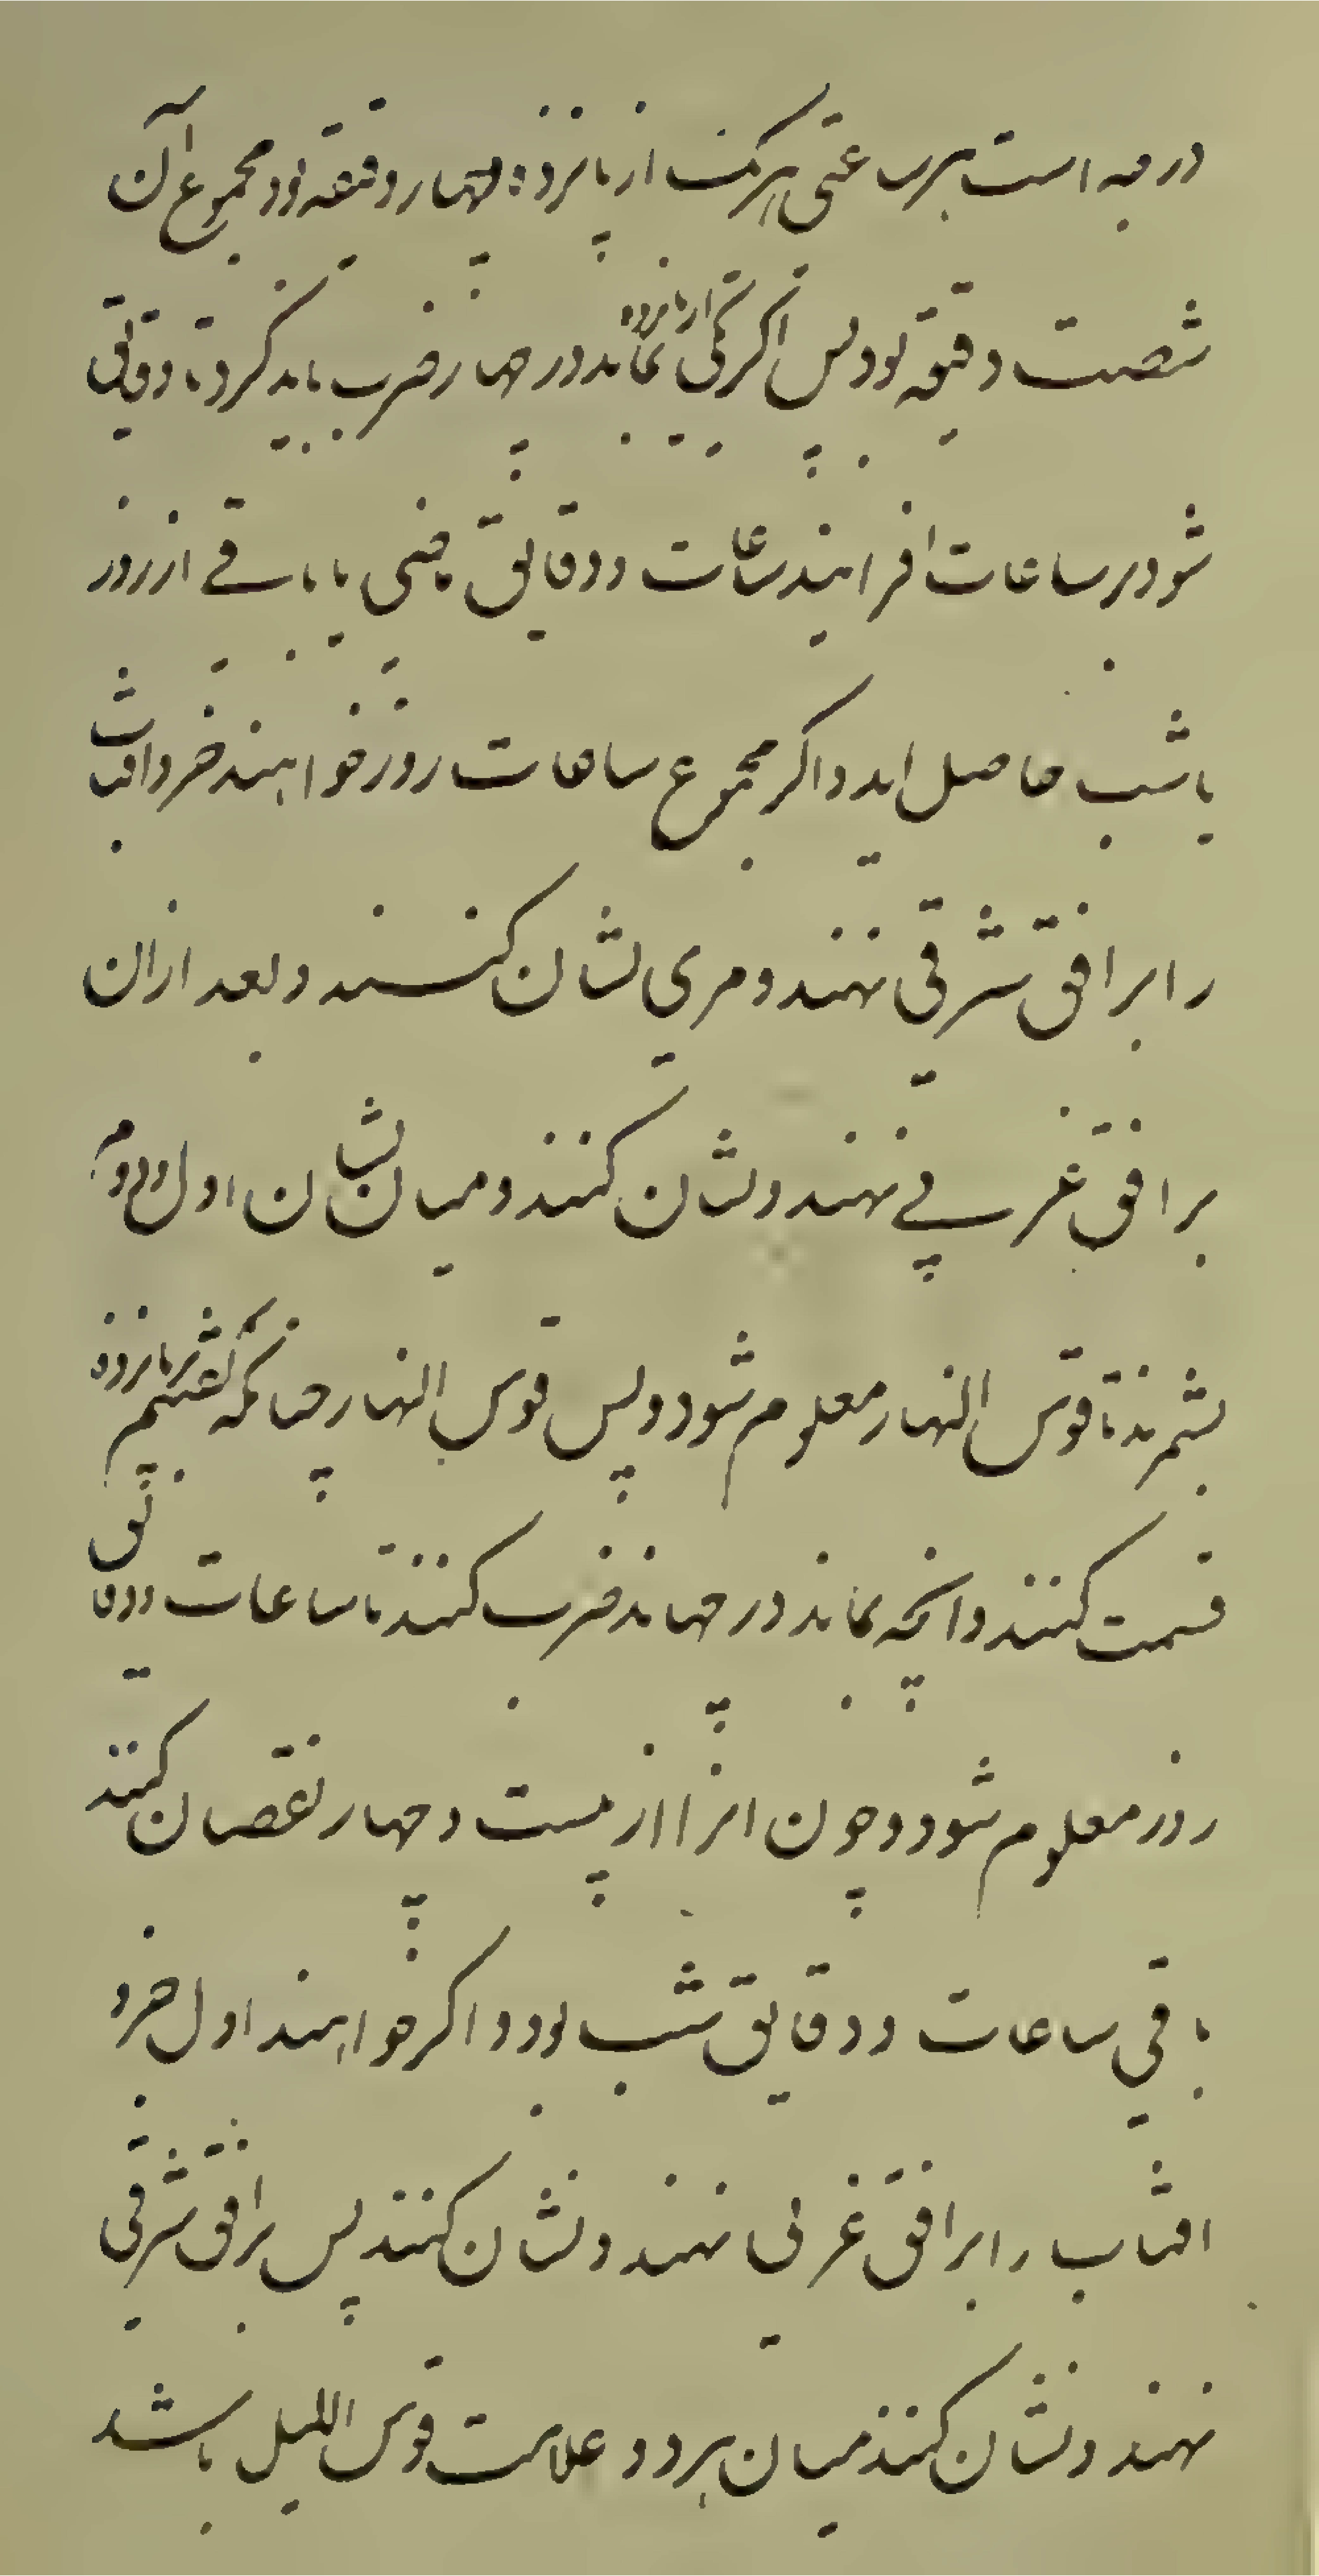 درجه است هر ساعتی هر یک از پانزده چهار دقیقه بود مجموع آن
شصت دقیقه بود پس اکر باقی از پانزده بماند در چهار ضرب باید کرد تا دقایق
شود بر ساعات افزایند ساعات و دقایق ماضی یا باقی از روز
یا شب حاصل اید و اکر مجموع ساعات روز خواهند جزو افتاب
را بر افق شرقی نهند و مری نشان کنند و بعد ازان
بر افق غربی نهند و نشان کنند و میان نشان اول و دوم
بشمرند تا قوس النهار معلوم شود و پس قوس النهار چنانکه کفتیم بر پانزده
قسمت کنند و انچه بماند در چهار ضرب کنند تا ساعات و دقایق
روز معلوم شود و چون انرا از بیست و چهار نقصان کنند
باقی ساعات و دقایق شب بود و اکر خواهند اول جزو
افتاب را بر افق غربی نهند و نشان کنند پس بر افق شرقی
نهند و نشان کنند میان هر دو علامت قوس اللیل باشد